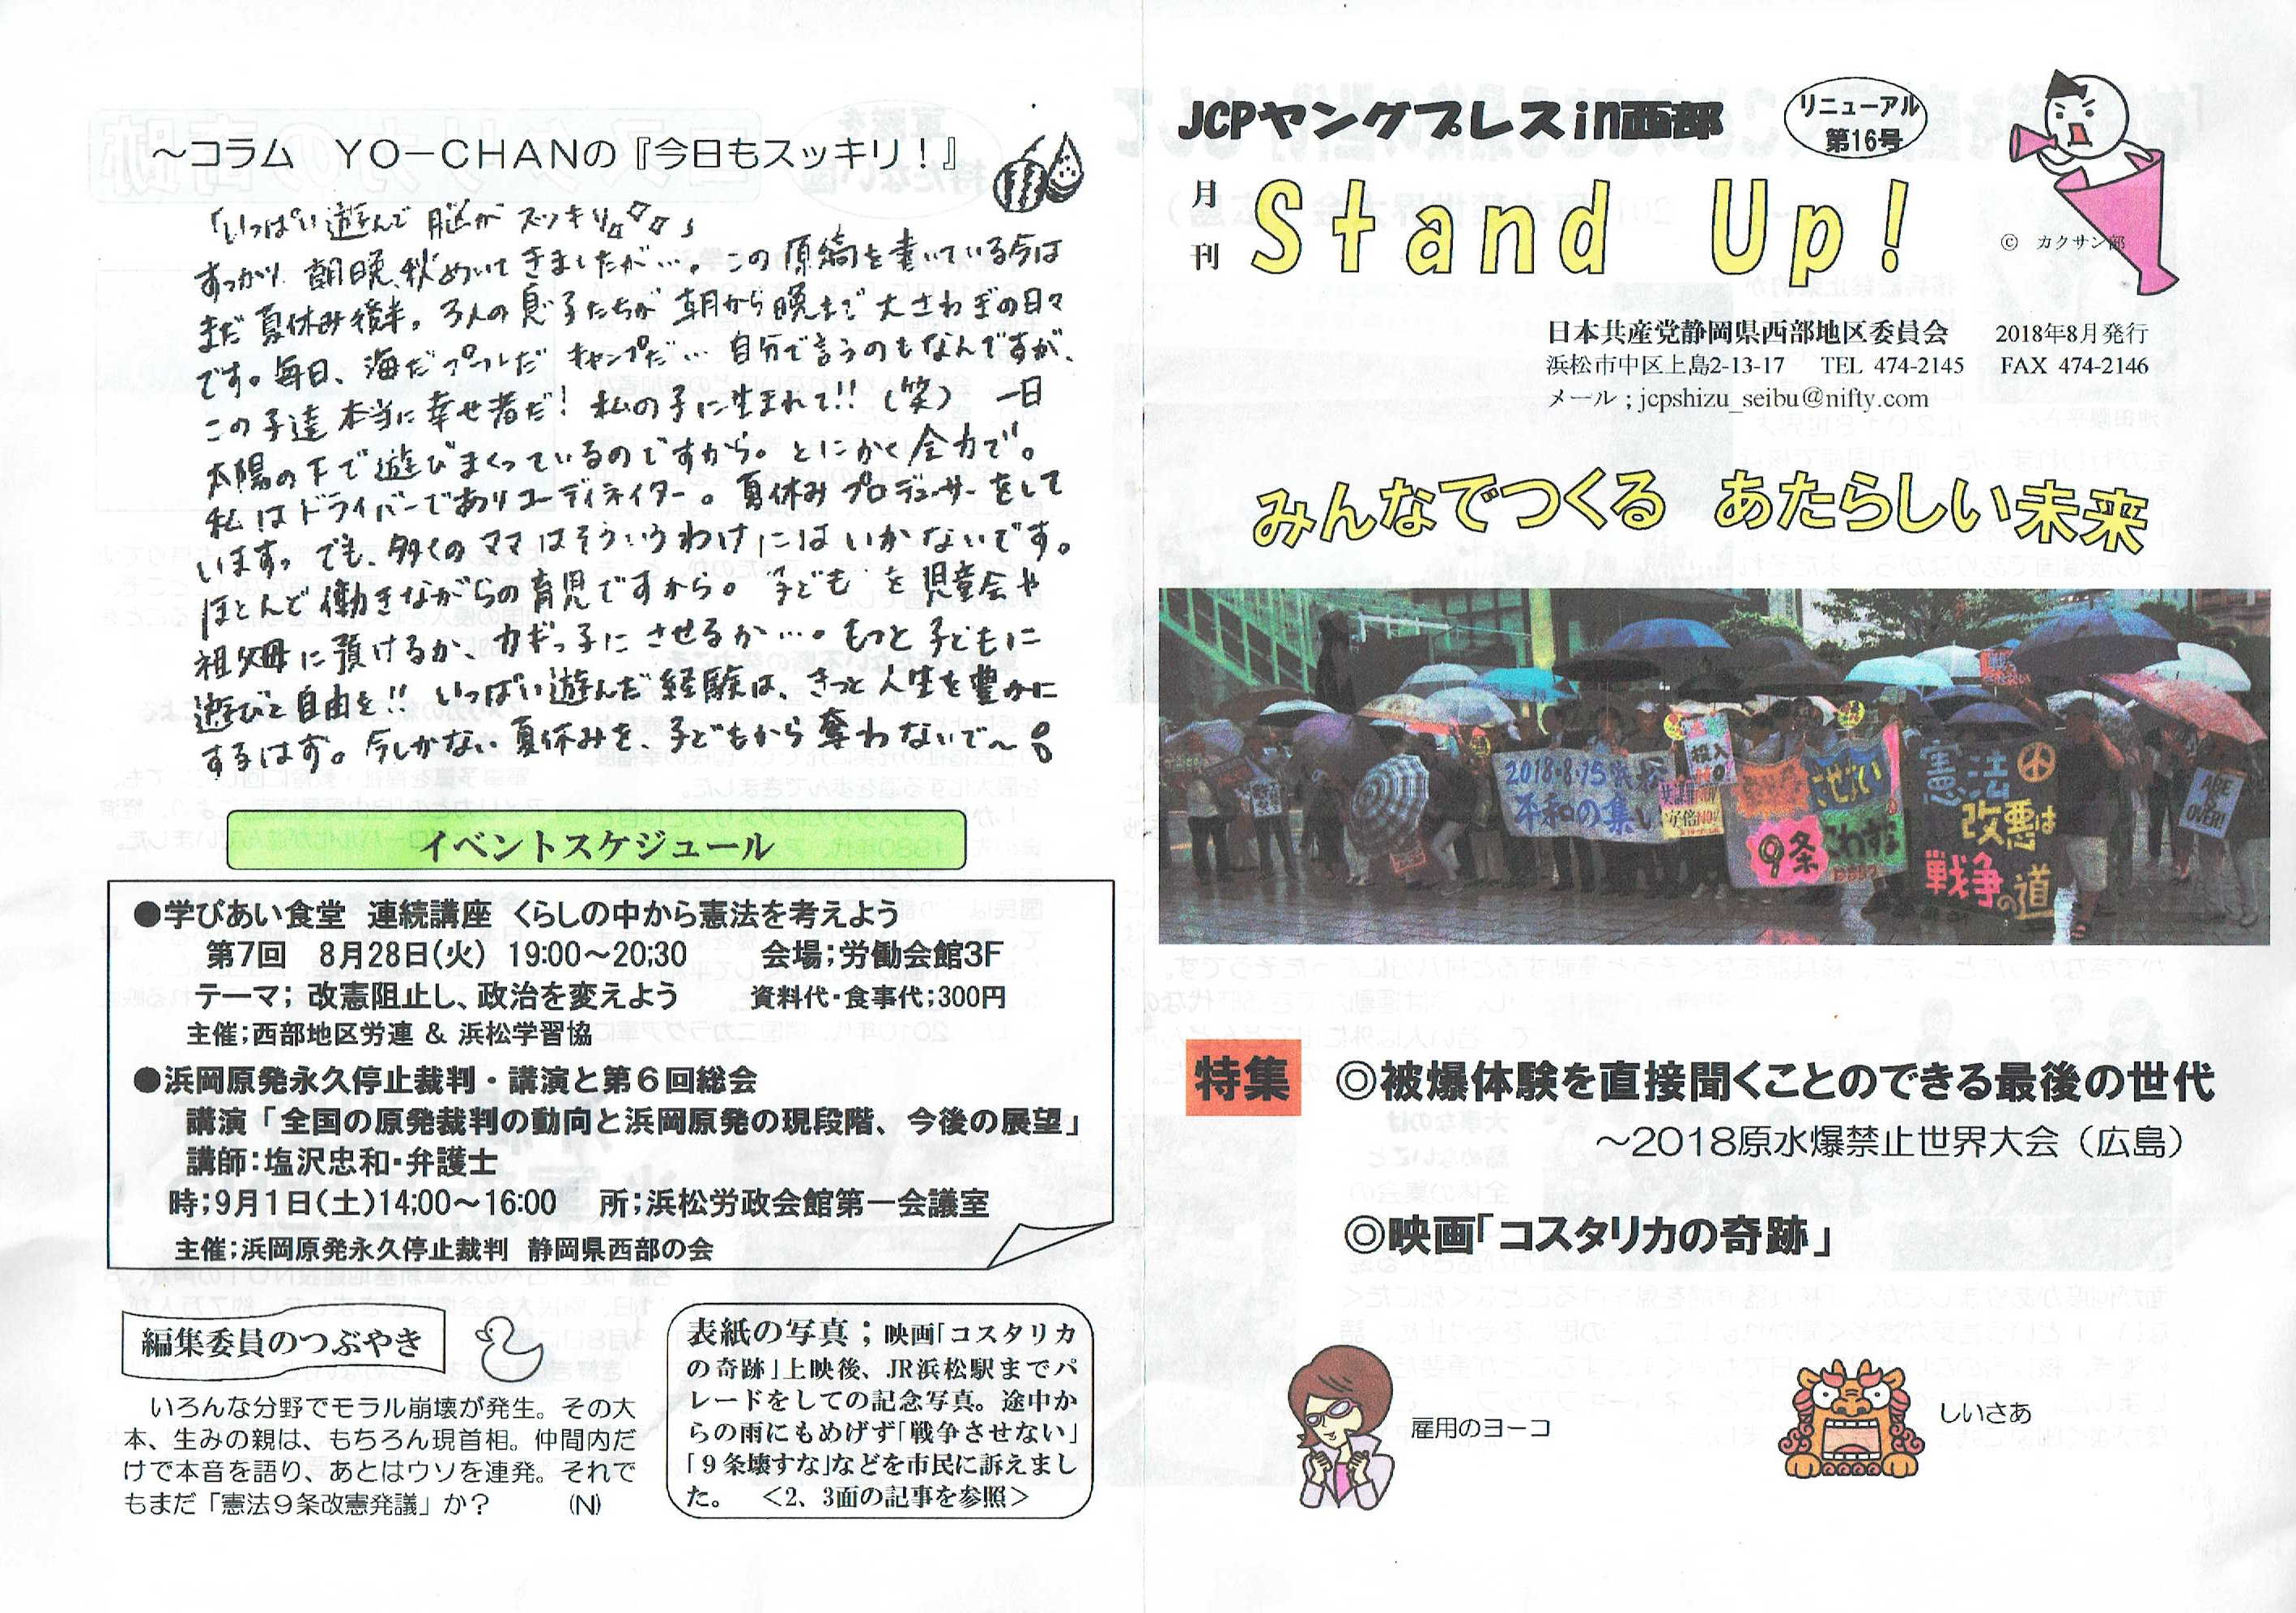 ～コラム　ＹＯ－ＣＨＡＮの『今日もスッキリ！』
「いっぱい遊んで脳がスッキリ」
すっかり朝晩、秋めいてきましたが…。この原稿を書いている今は
まだ夏休み後半。3人の息子たちが朝から晩まで大さわぎの日々
です。毎日、海だプールだキャンプだ…自分で言うのもなんですが、
この子達本当に幸せ者だ!私の子に生まれて!!(笑)　一日
太陽の下で遊びまくっているのですから。とにかく全力で。
私はドライバーでありコーディネイター。夏休みプロデューサーをして
います。でも、多くのママはそういうわけにはいかないです。
ほとんど働きながらの育児ですから。子どもを児童会や
祖父母に預けるか、カギっ子にさせるか…。もっと子どもに
遊びと自由を!!いっぱい遊んだ経験は、きっと人生を豊かに
するはず。今しかない夏休みを、子どもから奪わないで～
イベントスケジュール
●学びあい食堂　連続講座　くらしの中から憲法を考えよう
第7回　8月28日(火)　19:00～20;30　会場;労働会館3F
テーマ;改憲阻止し、政治を変えよう　資料代・食事代;300円
主催;西部地区労連 & 浜松学習協
●浜岡原発永久停止裁判・講演と第６回総会
講演「全国の原発裁判の動向と浜岡原発の現段階、今後の展望」
講師:塩沢忠和・弁護士
時;9月1日(土)14;00～16:00　所;浜松労政会館第一会議室
主催;浜岡原発永久停止裁判　静岡県西部の会
編集委員のつぶやき
いろんな分野でモラル崩壊が発生。その大
本、生みの親は、もちろん現首相。仲間内だ
けで本音を語り、あとはウソを連発。それで
もまだ「憲法９条改憲発議」か？　(N)
表紙の写真；映画「コスタリカ
の奇跡」上映後、JR浜松駅までパ
レードをしての記念写真。途中か
らの雨にもめげず「戦争させない」
「９条壊すな」などを市民に訴えまし
た。　＜2、3面の記事を参照＞
JCPヤングプレスin西部
リニューアル
第16号
月刊
Stand Up!
© カクサン部
日本共産党静岡県西部地区委員会　2018年8月発行
浜松市中区上島2-13-17　TEL 474-2145　FAX 474-2146
メール；jcpshizu_seibu@nifty.com
みんなでつくる　あたらしい未来
2018・8・15浜松
平和の集い
9条こわすな
憲法
改悪は
戦争の道
ARE
OVER!
特集
◎被爆体験を直接聞くことのできる最後の世代
～2018原水爆禁止世界大会（広島）
◎映画「コスタリカの奇跡」
雇用のヨーコ
しいさあ